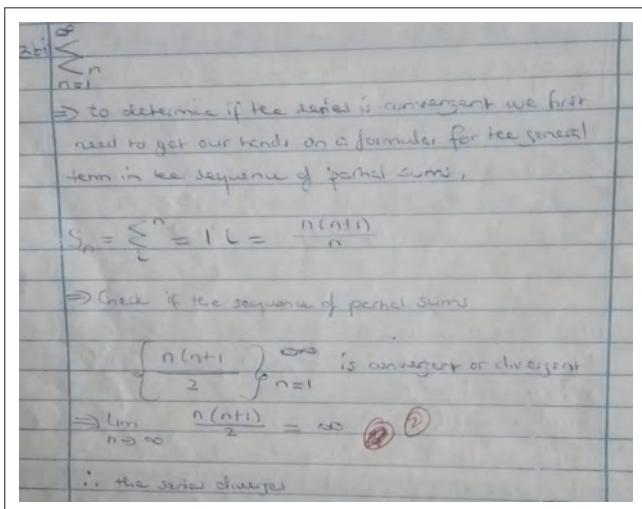 2bi) ∞
∑ n
n=1
⇒ to determine if tee series is convergent we first
need to get our hands on a formular for tee general
term in tee sequence of partial sums,
Sₙ = ∑ᵢⁿ = 1 i = n(n+1)/n
⇒ Check if tee sequence of partial sums
{n(n+1/2}∞ n=1 is convergent or divergent
⇒ Lim n→∞ n(n+1)/2 = ∞ 2
∴ the series diverges